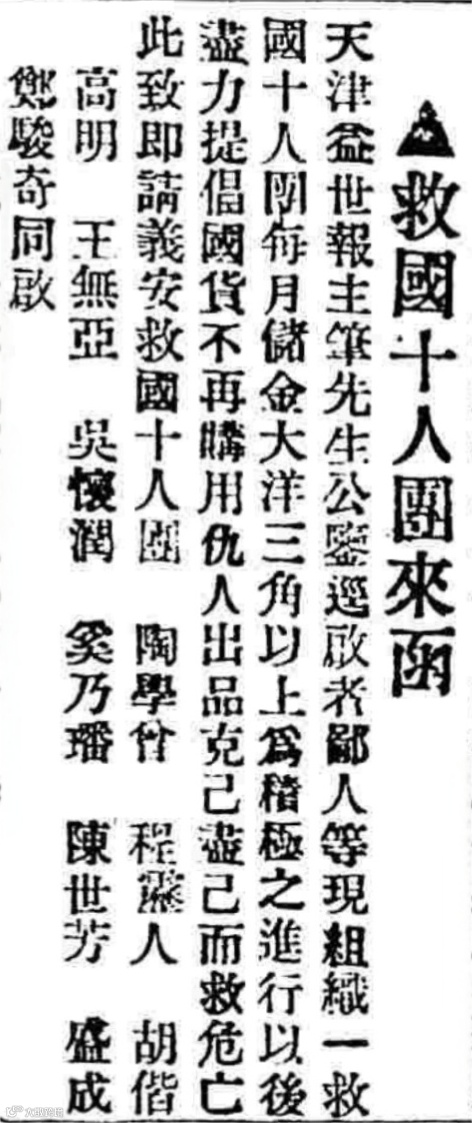 ▲救國十人團來函
天津益世報主筆先生公鑒逕啟者鄙人等現組織一救
國十人團每月儲金大洋三角以上爲積極之進行以後
盡力提倡國貨不再購用仇人出品克己盡己而救危亡
此致即請義安救國十人團 陶學曾 程靈人 胡偕
高明 王無亞 吳懷潤 奚乃璠 陳世芳 盛成
鄭駿奇同啟